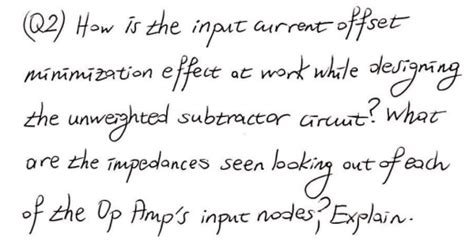 (Q2) How is the input current offset
minimization effect at work while designing
the unweighted subtractor circuit? What
are the impedances seen looking out of each
of the Op Amp's input nodes? Explain.